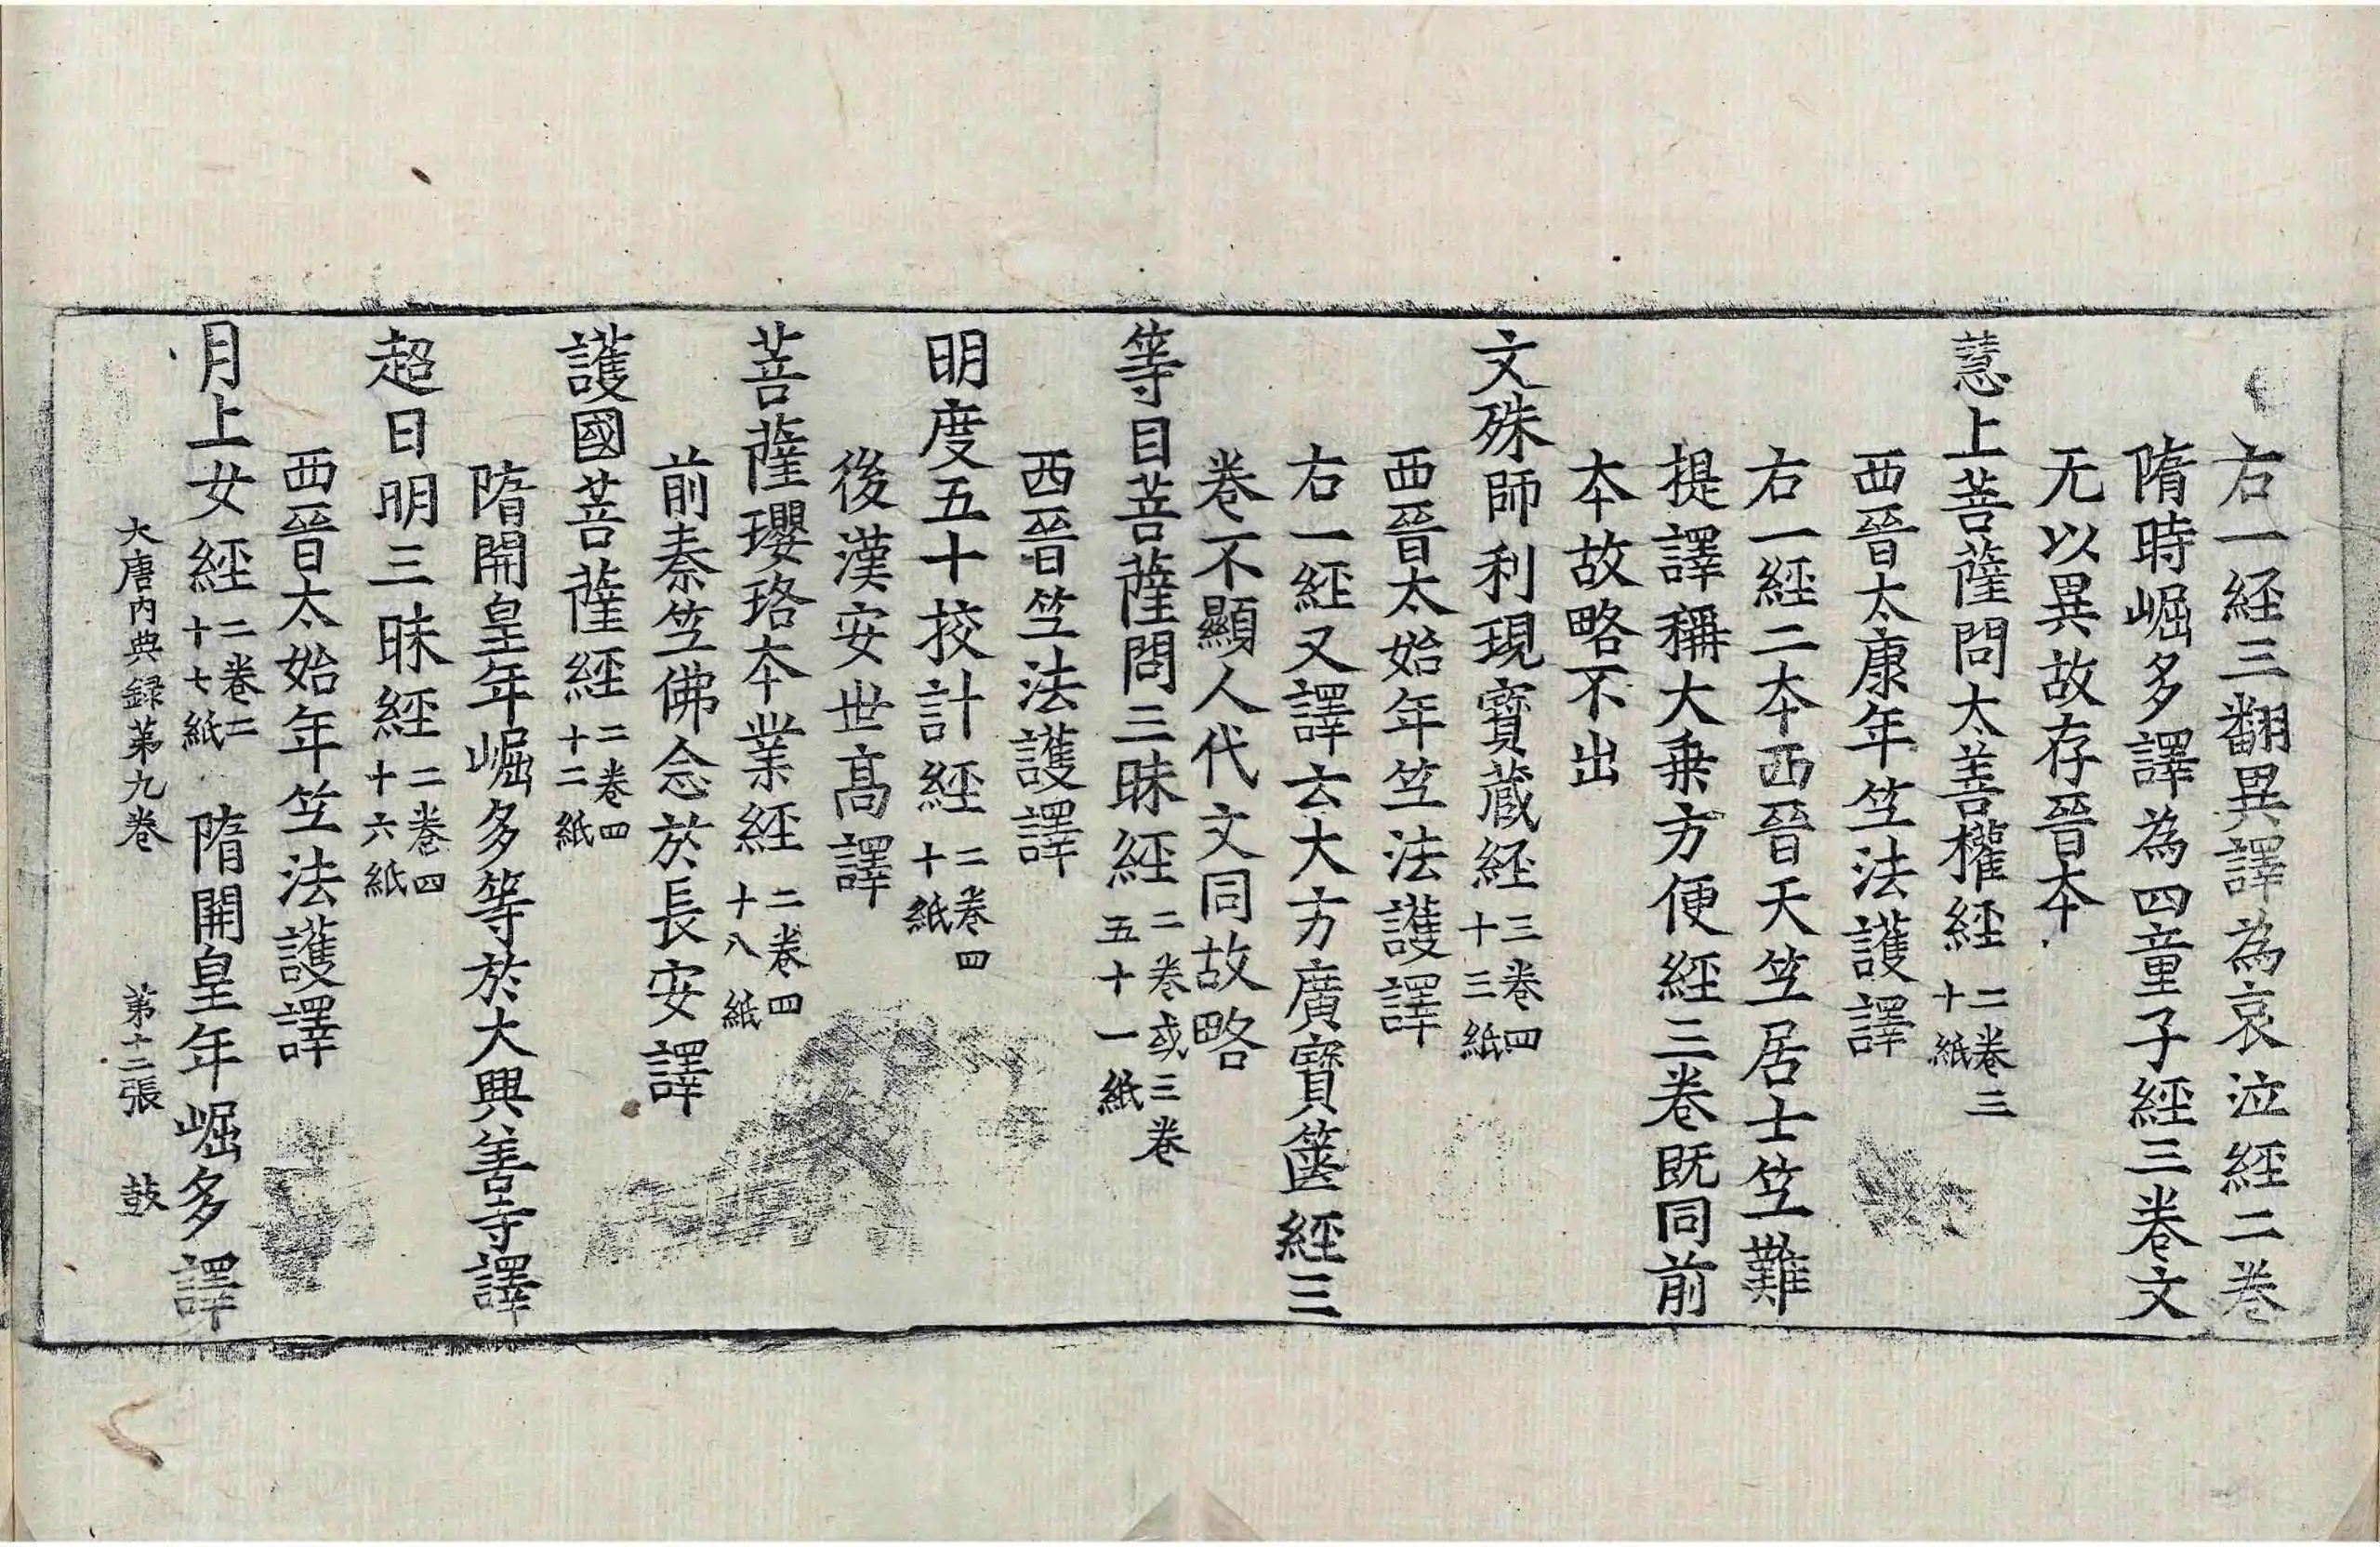 右一經三翻異譯為哀泣經二卷
隋時崛多譯為四童子經三卷文
无以異故存晉本
慧上菩薩問大善權經二卷三十紙
西晉太康年竺法護譯
右一經二本西晉天竺居士竺難
提譯稱大乗方便經三卷既同前
本故略不出
文殊師利現寶蔵經三卷四十三紙
西晉太始年竺法護譯
右一經又譯云大方廣寶篋經三
卷不顯人代文同故略
等目菩薩問三昧經二卷或三卷五十一紙
西晉竺法護譯
明度五十挍計經二卷四十紙
後漢安世髙譯
菩薩瓔珞本業經二卷四十八紙
前秦竺佛念於長安譯
護國菩薩經二卷四十二紙
隋開皇年崛多等於大興善寺譯
超日明三昧經二卷四十六紙
西晉太始年竺法護譯
月上女經二卷二十七紙 隋開皇年崛多譯
大唐内典録苐九卷 苐十二張 鼓